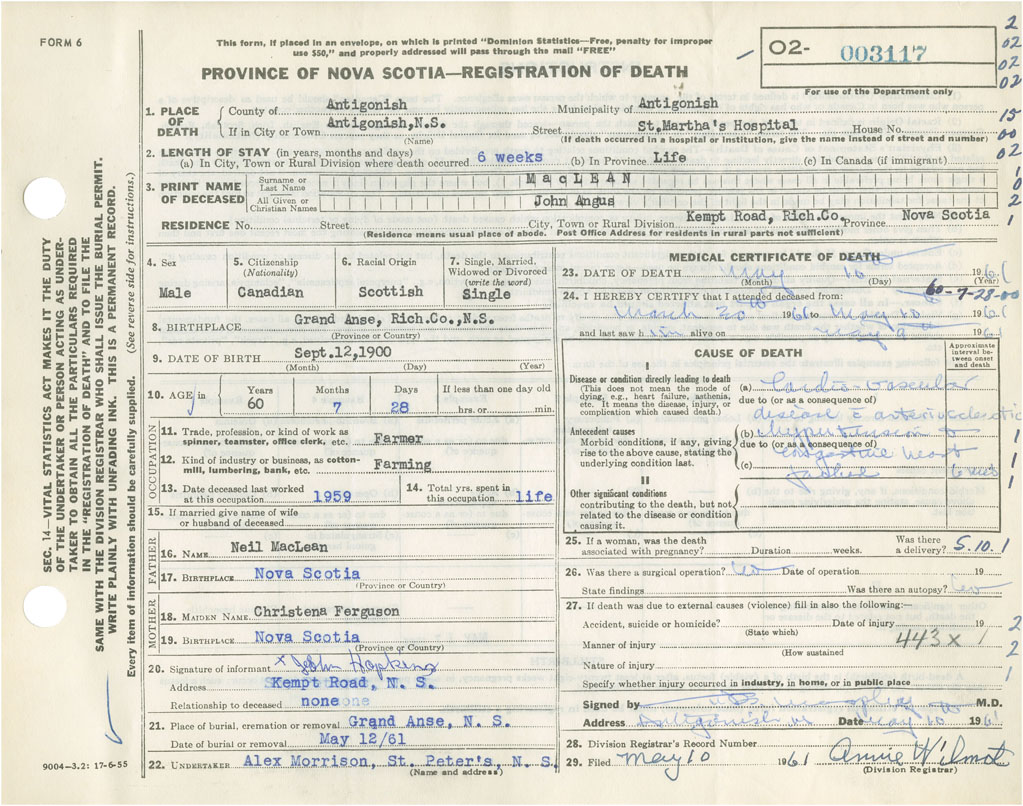 FORM 6
This form, if placed in an envelope, on which is printed "Dominion Statistics—Free, penalty for improper
use $50," and properly addressed will pass through the mail "FREE"
PROVINCE OF NOVA SCOTIA—REGISTRATION OF DEATH
O2- 003117
For use of the Department only
2
02
02
02
15
00
02
0
2
1
1. PLACE OF DEATH { County of Antigonish Municipality of Antigonish
If in City or Town Antigonish, N.S. Street St.Martha's Hospital House No.
(Name) (If death occurred in a hospital or institution, give the name instead of street and number)
2. LENGTH OF STAY (in years, months and days)
(a) In City, Town or Rural Division where death occurred 6 weeks (b) In Province Life (c) In Canada (if immigrant)
3. PRINT NAME OF DECEASED
Surname or Last Name MacLEAN
All Given or Christian Names John Angus
RESIDENCE No. Street City, Town or Rural Division Kempt Road, Rich.Co. Province Nova Scotia
(Residence means usual place of abode. Post Office Address for residents in rural parts not sufficient)
4. Sex
Male
5. Citizenship
(Nationality)
Canadian
6. Racial Origin
Scottish
7. Single, Married, Widowed or Divorced
(write the word)
Single
8. BIRTHPLACE Grand Anse, Rich.Co.,N.S.
(Province or Country)
9. DATE OF BIRTH Sept.12,1900
(Month) (Day) (Year)
10. AGE in Years 60 Months 7 Days 28 If less than one day old hrs. or min.
OCCUPATION
11. Trade, profession, or kind of work as
spinner, teamster, office clerk, etc. Farmer
12. Kind of industry or business, as cotton-
mill, lumbering, bank, etc. Farming
13. Date deceased last worked
at this occupation 1959
14. Total yrs. spent in
this occupation life
15. If married give name of wife
or husband of deceased
FATHER
16. NAME Neil MacLean
17. BIRTHPLACE Nova Scotia
(Province or Country)
MOTHER
18. MAIDEN NAME Christena Ferguson
19. BIRTHPLACE Nova Scotia
(Province or Country)
20. Signature of informant x John Hopkins
Address Kempt Road, N. S.
Relationship to deceased none
21. Place of burial, cremation or removal Grand Anse, N. S.
Date of burial or removal May 12/61
22. UNDERTAKER Alex Morrison, St. Peter's, N. S.
(Name and address)
MEDICAL CERTIFICATE OF DEATH
23. DATE OF DEATH May 10 1961
(Month) (Day) (Year)
60-7-28-00
24. I HEREBY CERTIFY that I attended deceased from:
March 30th 1961 to May 10 1961
and last saw him alive on May 9 1961
CAUSE OF DEATH
Approximate interval between onset and death
I
Disease or condition directly leading to death
(This does not mean the mode of
dying, e.g., heart failure, asthenia,
etc. It means the disease, injury, or
complication which caused death.)
(a) Cardio-vascular
due to (or as a consequence of)
disease c arteriosclerotic
Antecedent causes
Morbid conditions, if any, giving
rise to the above cause, stating the
underlying condition last.
(b) Hypertension
due to (or as a consequence of)
congestive heart
(c) failure
1
1
1
II
Other significant conditions
contributing to the death, but not
related to the disease or condition
causing it.
25. If a woman, was the death
associated with pregnancy? Duration weeks. Was there
a delivery? 5.10.1
26. Was there a surgical operation? Date of operation 19
State findings Was there an autopsy?
27. If death was due to external causes (violence) fill in also the following:—
Accident, suicide or homicide? Date of injury 19
(State which)
Manner of injury 443 x 1
(How sustained
Nature of injury
Specify whether injury occurred in industry, in home, or in public place
2
2
1
Signed by M.D.
Address Antigonish Date May 10 1961
28. Division Registrar's Record Number
29. Filed May 10 1961 Annie Wilmot
(Division Registrar)
SEC. 14—VITAL STATISTICS ACT MAKES IT THE DUTY
OF THE UNDERTAKER OR PERSON ACTING AS UNDER-
TAKER TO OBTAIN ALL THE PARTICULARS REQUIRED
IN THE "REGISTRATION OF DEATH" AND TO FILE THE
SAME WITH THE DIVISION REGISTRAR WHO SHALL ISSUE THE BURIAL PERMIT.
WRITE PLAINLY WITH UNFADING INK. THIS IS A PERMANENT RECORD.
Every item of information should be carefully supplied. (See reverse side for instructions.)
9004—3.2: 17-6-55